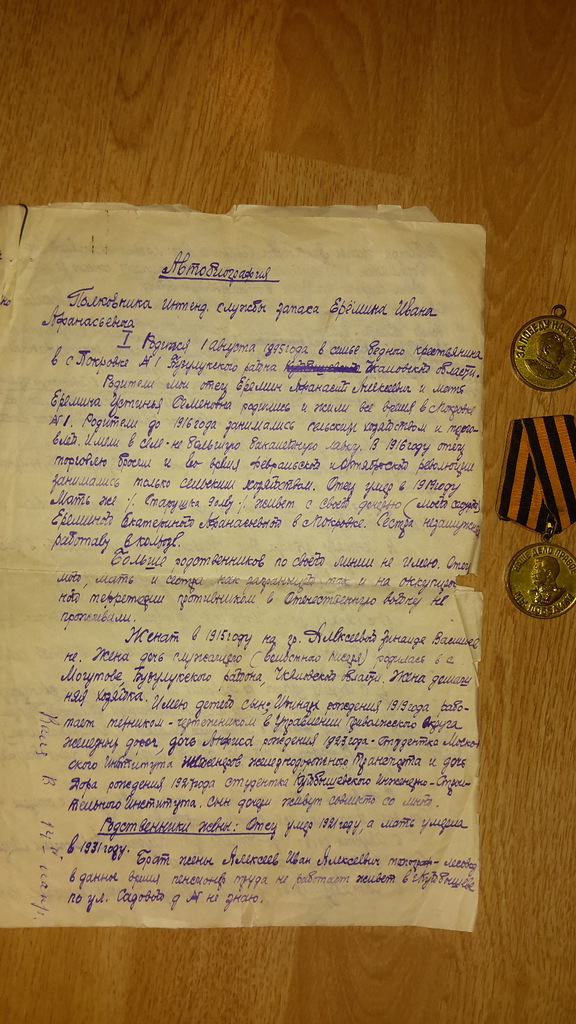 Автобиография
Полковника интенд. службы запаса Ерёмина Ивана
Афанасьевича
I Родился 1 августа 1895 года в семье бедного крестьянина
в с Покровке № 1 Бузулукского района Чкаловской области.
Родители мои отец Еремин Афанасий Алексеевич и мать
Еремина Устинья Семеновна родились и жили все время в Покровке
№ 1. Родители до 1916 года занимались сельским хозяйством и торго-
влей. Имели в селе не большую бакалейную лавку. В 1916 году отец
торговлю бросил и во время февральской и Октябрьской революции
занимались только сельским хозяйством. Отец умер в году
Мать же /. Старушка /. живет с своей дочерью (моей сестрой
Ереминой Екатериной Афанасьевной в Покровке. Сестра незамужняя
работает в колхозе.
Больше родственников по своей линии не имею. Отец
мой, мать и сестра как заграницей так и на оккупирован-
ной территории противником в Отечественную войну не
проживали.
Женат в 1915 году на гр. Алексеевой Зинаиде Василиев
не. Жена дочь служащего (волостного писаря) родилась в с.
Могутове, Бузулукского района, Чкаловской области. Жена домаш-
няя хозяйка. Имею детей сын рождения 1919 года рабо-
тает техником-чертежником в Управлении Приволжского Округа
железных дорог, дочь рождения 1923 года - студентка Москов
ского Института Инженеров железнодорожного транспорта и дочь
Дора рождения 1927 года студентка Куйбышевского Инженерно-Строи-
тельного Института. Сын дочери живут совместно со мной.
Родственники жены: Отец умер 1921 году, а мать умерла
в 1931 году.
Брат жены Алексеев Иван Алексеевич
в данное время пенсионер труда не работает живет в г Куйбышеве
по ул. Садовой д № не знаю.
ЗА ПОБЕДУ НАД
НАШЕ ДЕЛО ПРАВОЕ
МЫ ПОБЕДИЛИ